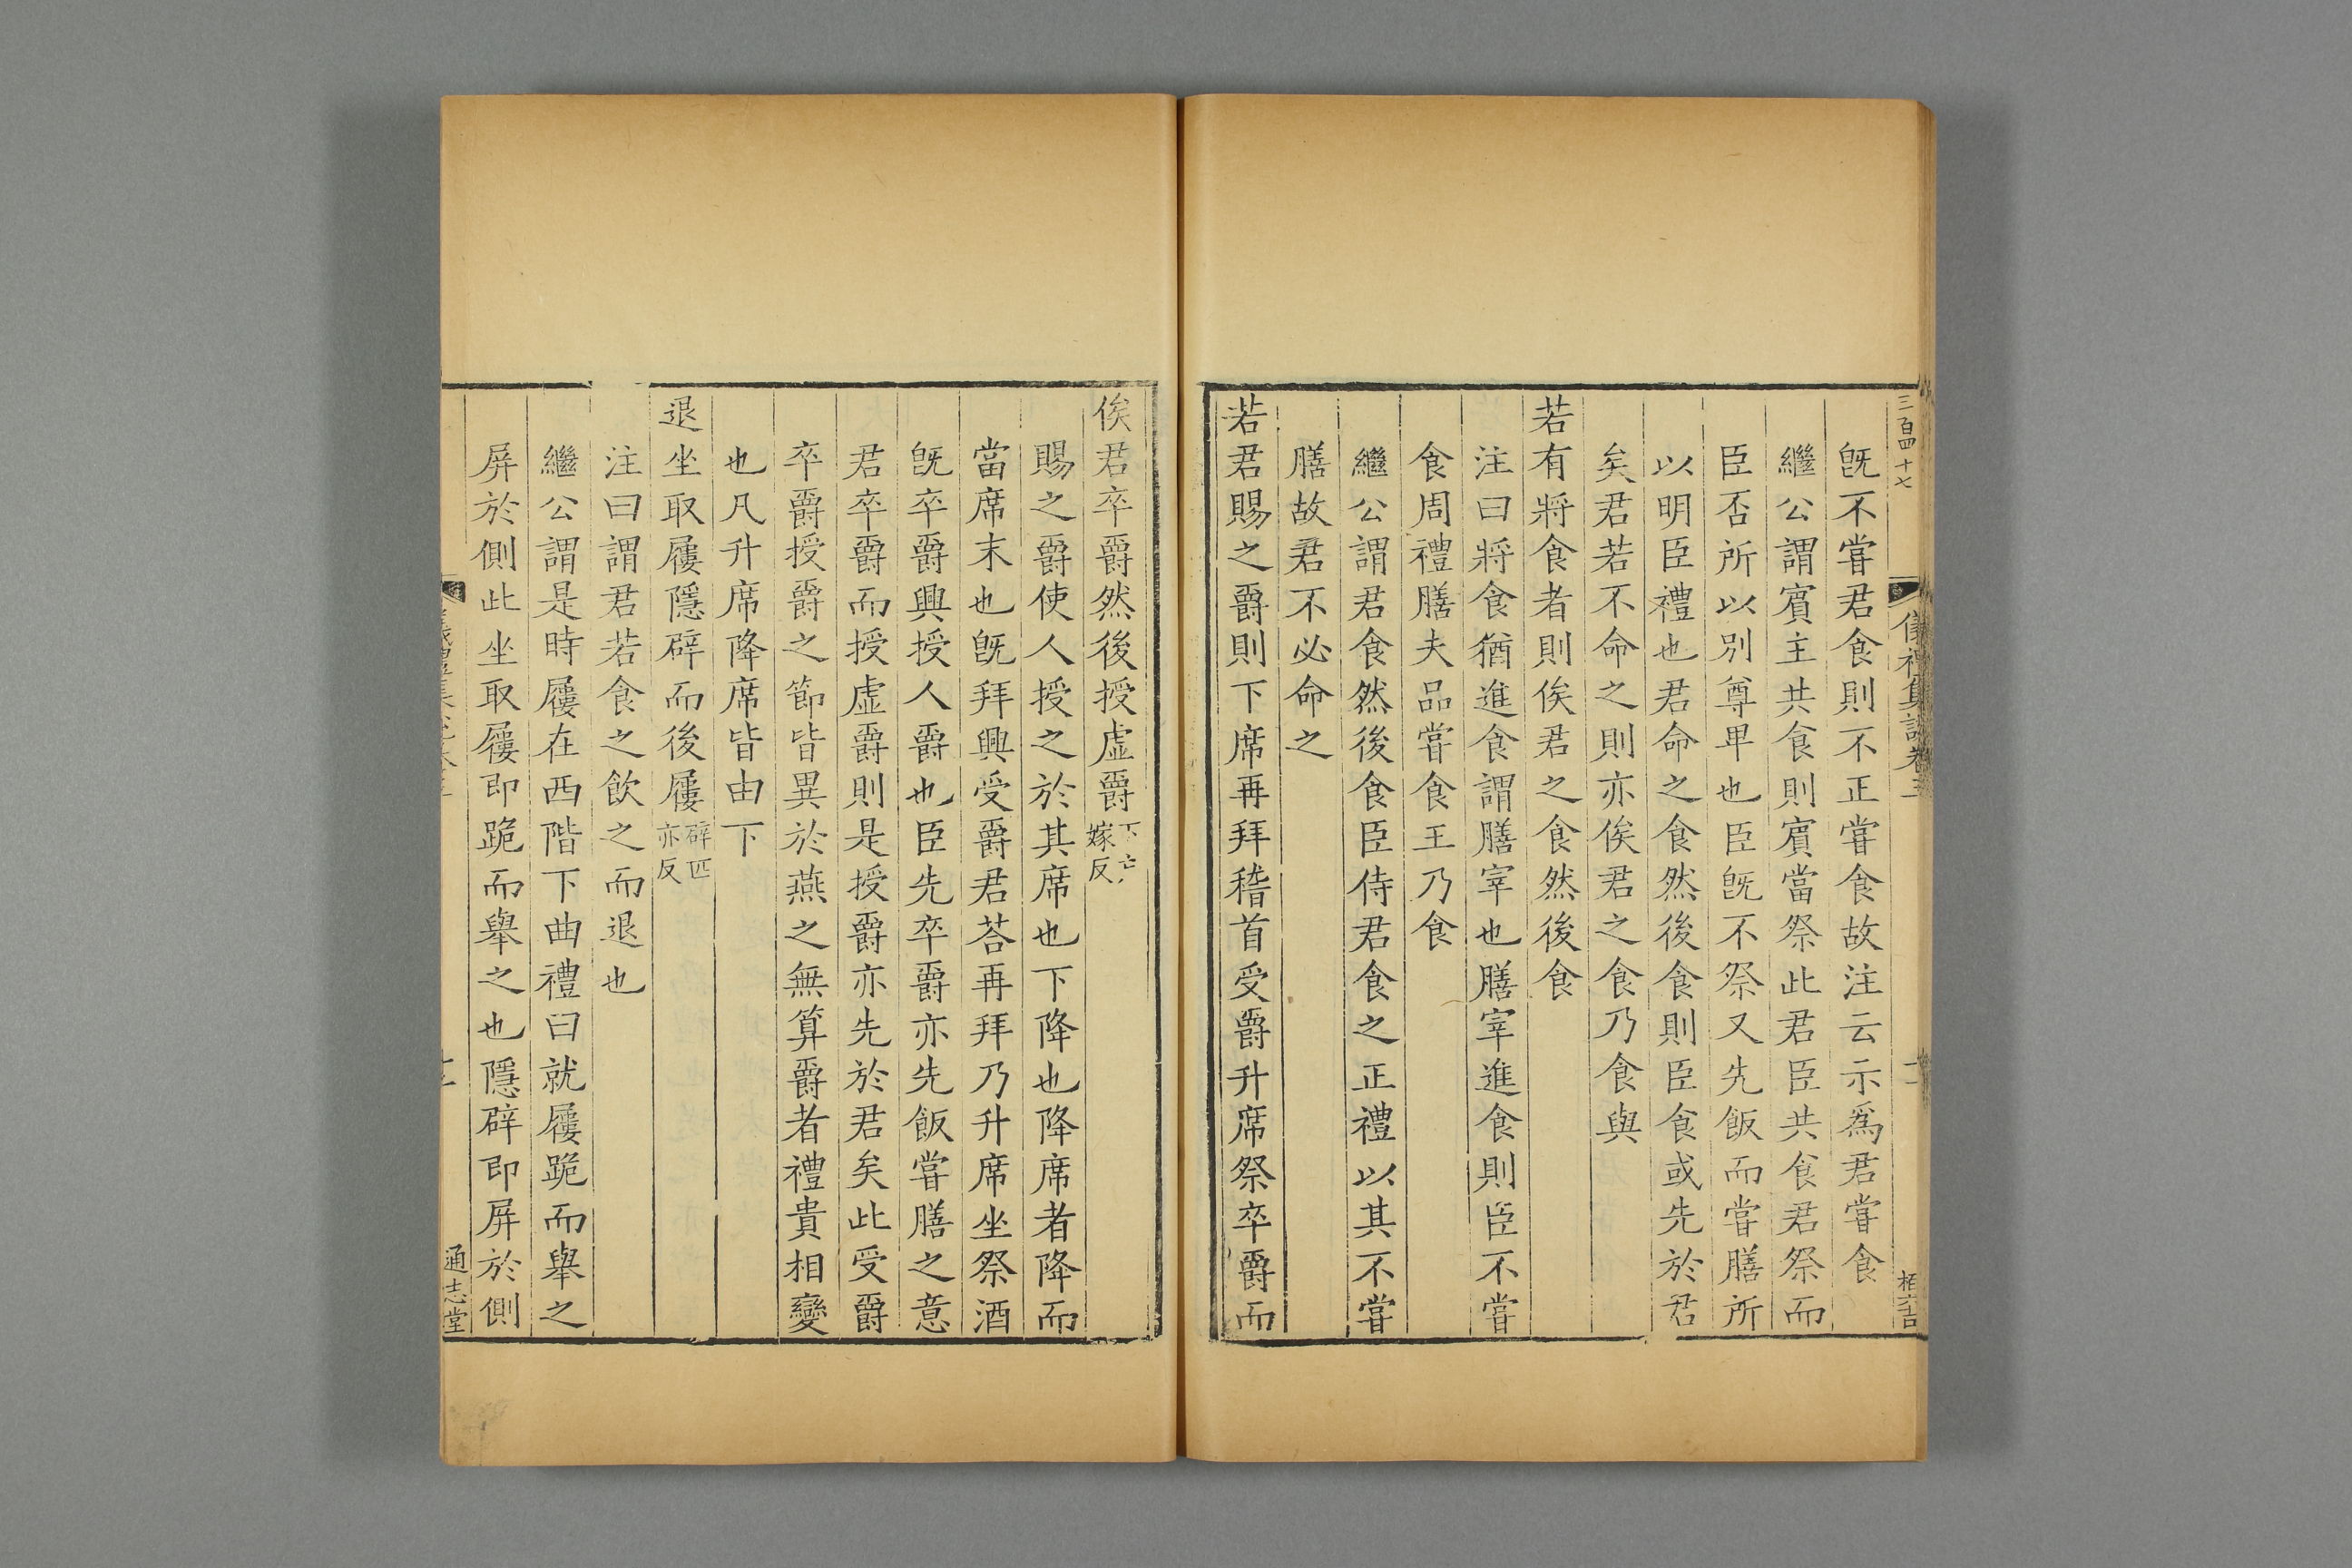 三百四十七
儀禮集說卷三
栢吉
既不嘗君食則不正嘗食故注云示爲君嘗食
繼公謂賓主共食則賓當祭此君臣共食君祭而
臣否所以別尊卑也臣既不祭又先飯而嘗膳所
以明臣禮也君命之食然後食則臣食或先於君
矣君若不命之則亦俟君之食乃食與
若有將食者則俟君之食然後食
注曰將食猶進食謂膳宰也膳宰進食則臣不嘗
食周禮膳夫品嘗食王乃食
繼公謂君食然後食臣侍君食之正禮以其不嘗
膳故君不必命之
若君賜之爵則下席再拜稽首受爵升席祭卒爵而
俟君卒爵然後授虛爵下亡嫁反
賜之爵使人授之於其席也下降也降席者降而
當席末也既拜興受爵君荅再拜乃升席坐祭酒
既卒爵興授人爵也臣先卒爵亦先飯嘗膳之意
君卒爵而授虛爵則是授爵亦先於君矣此受爵
卒爵授爵之節皆異於燕之無算爵者禮貴相變
也凡升席降席皆由下
退坐取屨隱辟而後屨辟匹亦反
注曰謂君若食之飲之而退也
繼公謂是時屨在西階下曲禮曰就屨跪而舉之
屏於側此坐取屨即跪而舉之也隱辟即屏於側
通志堂